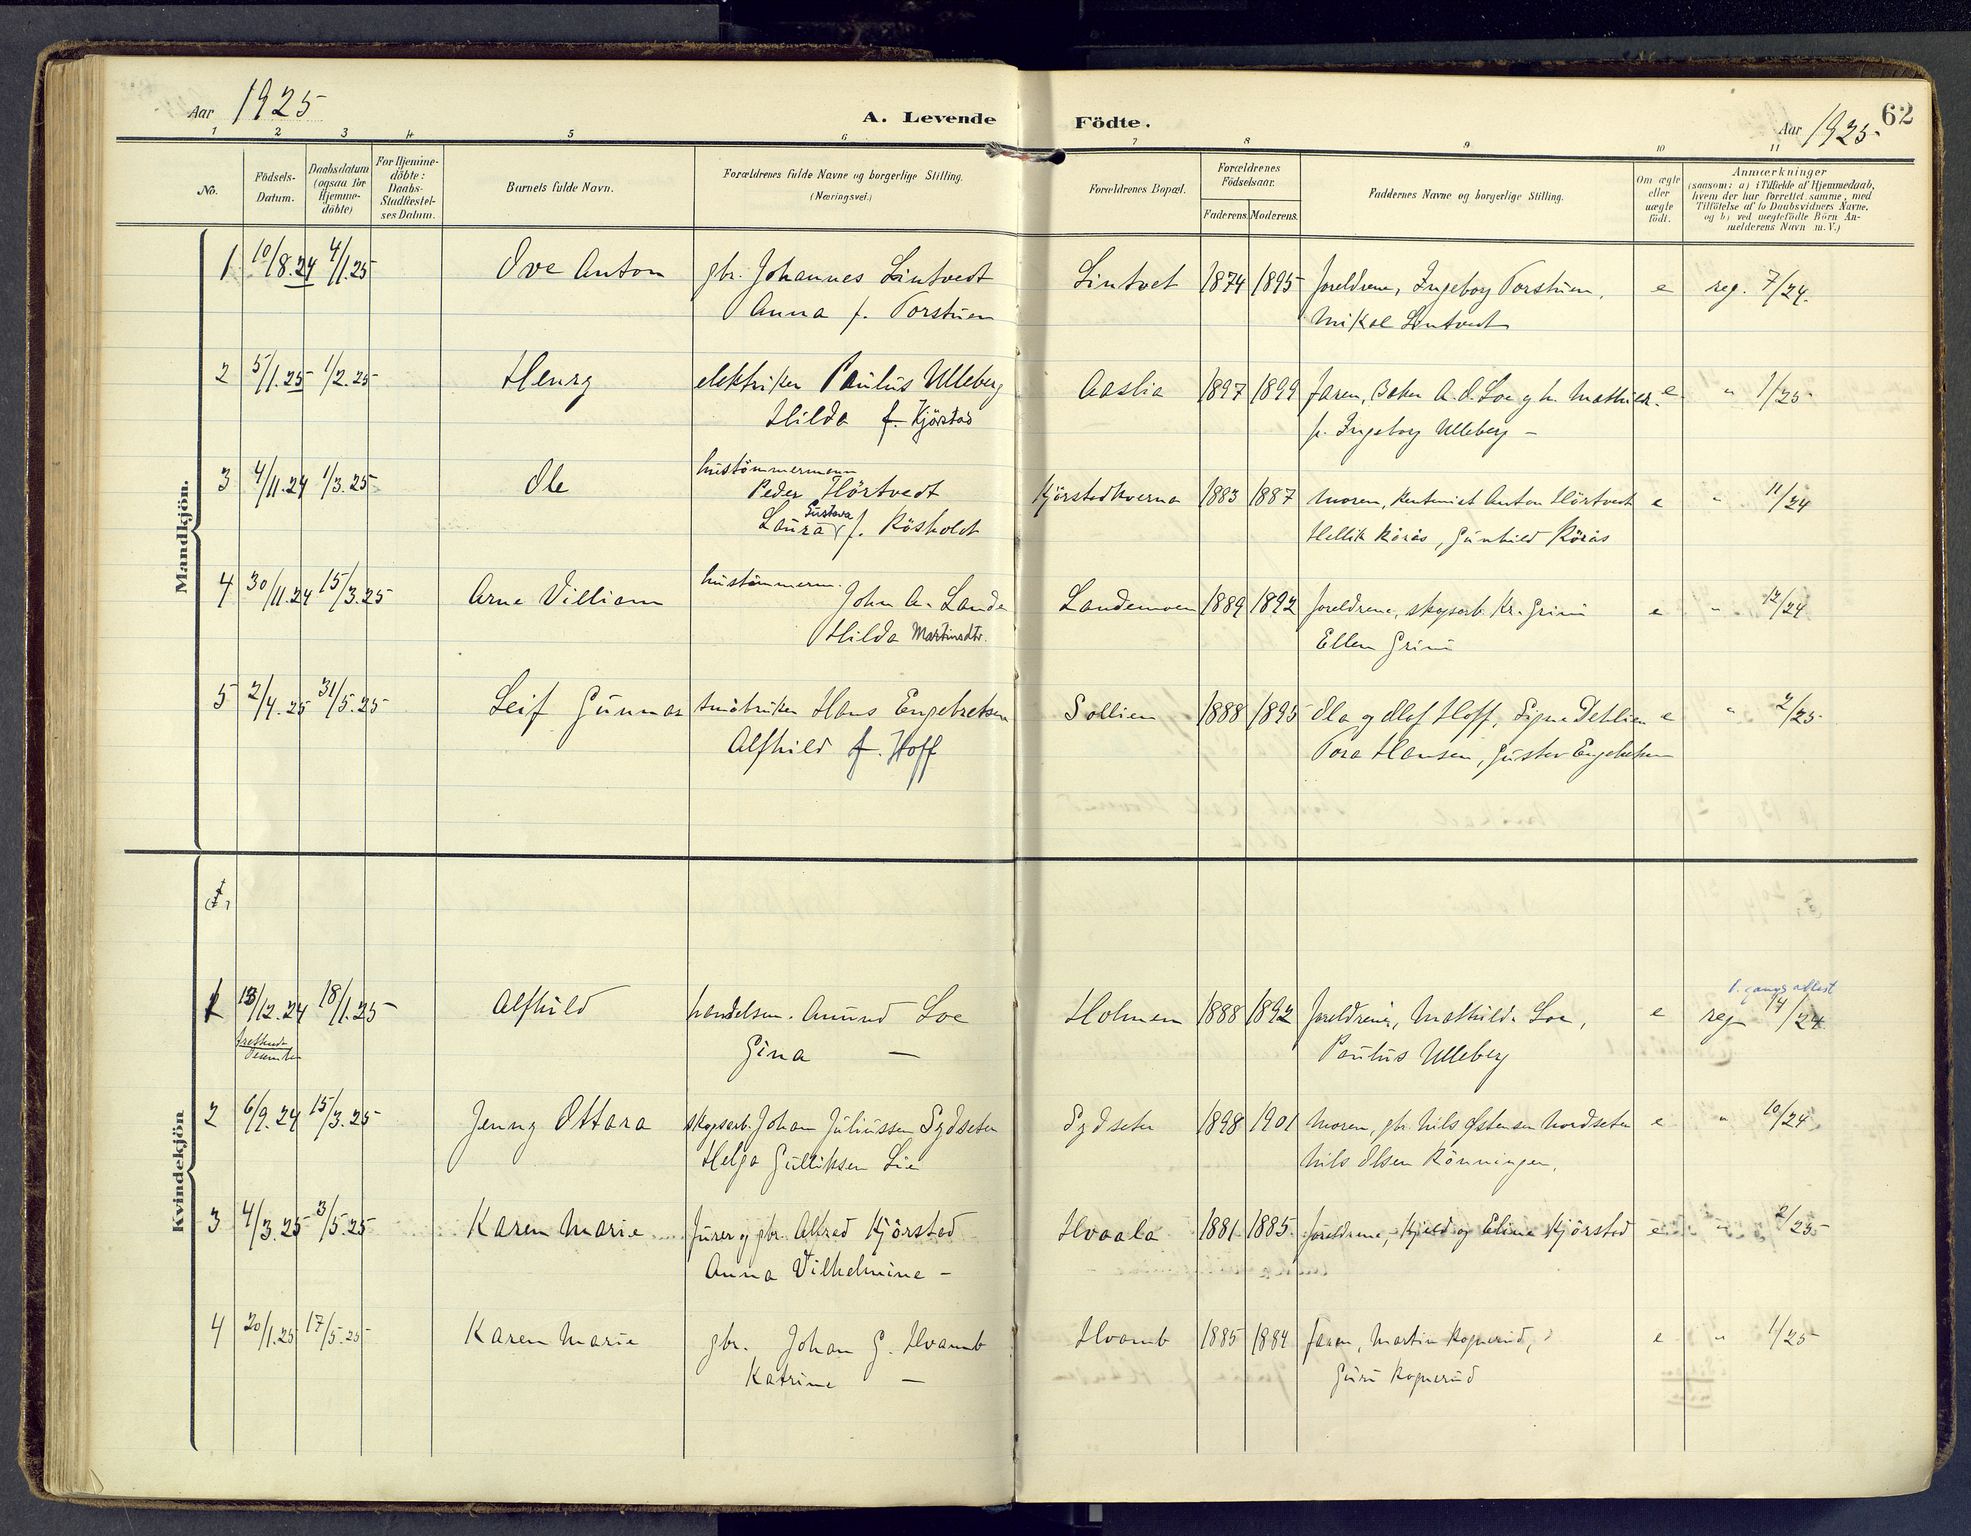 Aar 1925
A. Levende Födte.
Aar 1925
62
1 2 3 4 5 6 7 8 9 10 11
No.
Födsels-Datum.
Daabsdatum (ogsaa for Hjemme-döbte)
For Hjemme-döbte: Daabs-Stadfæstel-ses Datum.
Barnets fulde Navn.
Forældrenes fulde Navne og borgerlige Stilling.
(Næringsvei.)
Forældrenes Bopæl.
Forældrenes Födselsaar.
Faderens. Moderens.
Faddernes Navne og borgerlige Stilling.
Om ægte eller uægte födt.
Anmærkninger
(saasom: a) i Tilfælde af Hjemmedaab, hvem der har forrettet samme, med Tilföielse af to Daabsvidners Navne, og b) ved uægtefödte Börn An-melderens Navn m. V.)
Mandkjön.
1 10/8.24 4/1.25 Ove Anton gbr. Johannes Lintvedt Lintvet 1874 1895 foreldrene, Ingeborg Torstuen, e reg. 7/24.
Anna f. Torstuen Mikal Lintvedt
2 5/1.25 1/2.25 Henry elektriker Paulus Ulleberg Aaslia 1897 1899 faren, A. O. Loe og h. Mathilde e " 1/25
Hilda f. Kjörstad fr. Ingeborg Ulleberg
3 4/11.24 1/3.25 Ole hustömmermann
Peder Hörtvedt Kjörstadkverna 1883 1887 moren, Anton Hörtvedt e " 11/24
Gustava
Laura f. Kösholdt Hellik Körås, Gunhild Körås
4 30/11.24 15/3.25 Arne Villiam hustömmerm.
John A. Lande Landemoen 1889 1892 foreldrene, skogsarb. Kr. Grini e " 12/24
Hilda Martinsdtr. Ellen Grini
5 2/4.25 31/5.25 Leif Gunnar småbruker Hans Engebretsen Sollien 1888 1895 Ola og Olaf Hoff, Signe e " 2/25
Alfhild f. Hoff Tora Hansen, Gustav Engebretsen
Kvindekjön
1. gangs attest
1 13/12.24 18/1.25 Alfhild handelsm. Amund Loe Holmen 1888 1892 foreldrene, Mathilde Loe, e reg 14/24
trettende desember
Gina — Paulus Ulleberg
2 6/9.24 15/3.25 Jenny Ottara skogsarb. Johan Juliussen Sydseter Sydseter 1898 1901 moren, gbr. Nils Østensen Nordseter e " 10/24
Helga Gulliksen Lie Nils Olsen Rönningen,
3 4/3.25 3/5.25 Karen Marie furer og gbr. Alfred Kjörstad Hvaala 1881 1885 foreldrene, Kjeld og Eline Kjörstad e " 2/25
Anna Vilhelmine —
4 20/1.25 17/5.25 Karen Marie gbr. Johan G. Hvamb Hvamb 1885 1884 faren, Martin Kognerud, e " 1/25
Katrine — Guri Kognerud